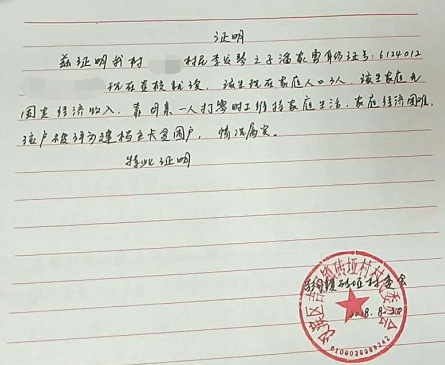 证明
兹证明我村 村民李发琴之子潘家勇身份证号:6124012
现在贵校就读,该生现在家庭人口3人,该生家庭无
固定经济收入,靠母亲一人打零时工维持家庭生活,家庭经济困难,
该户被评为建档立卡贫困户,情况属实。
特此证明
砖垭村委会
2018.8.